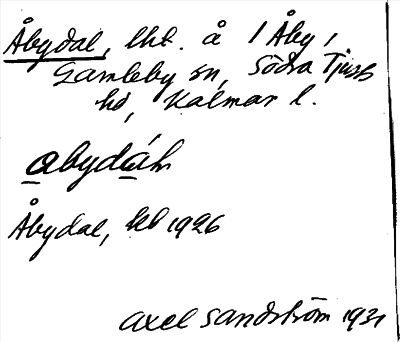 Åbydal, lht. å / Åby,
Gamleby sn, Södra Tjust
hd, Kalmar l.
abydáh
Åbydal, kb 1926
Axel Sandström 1931